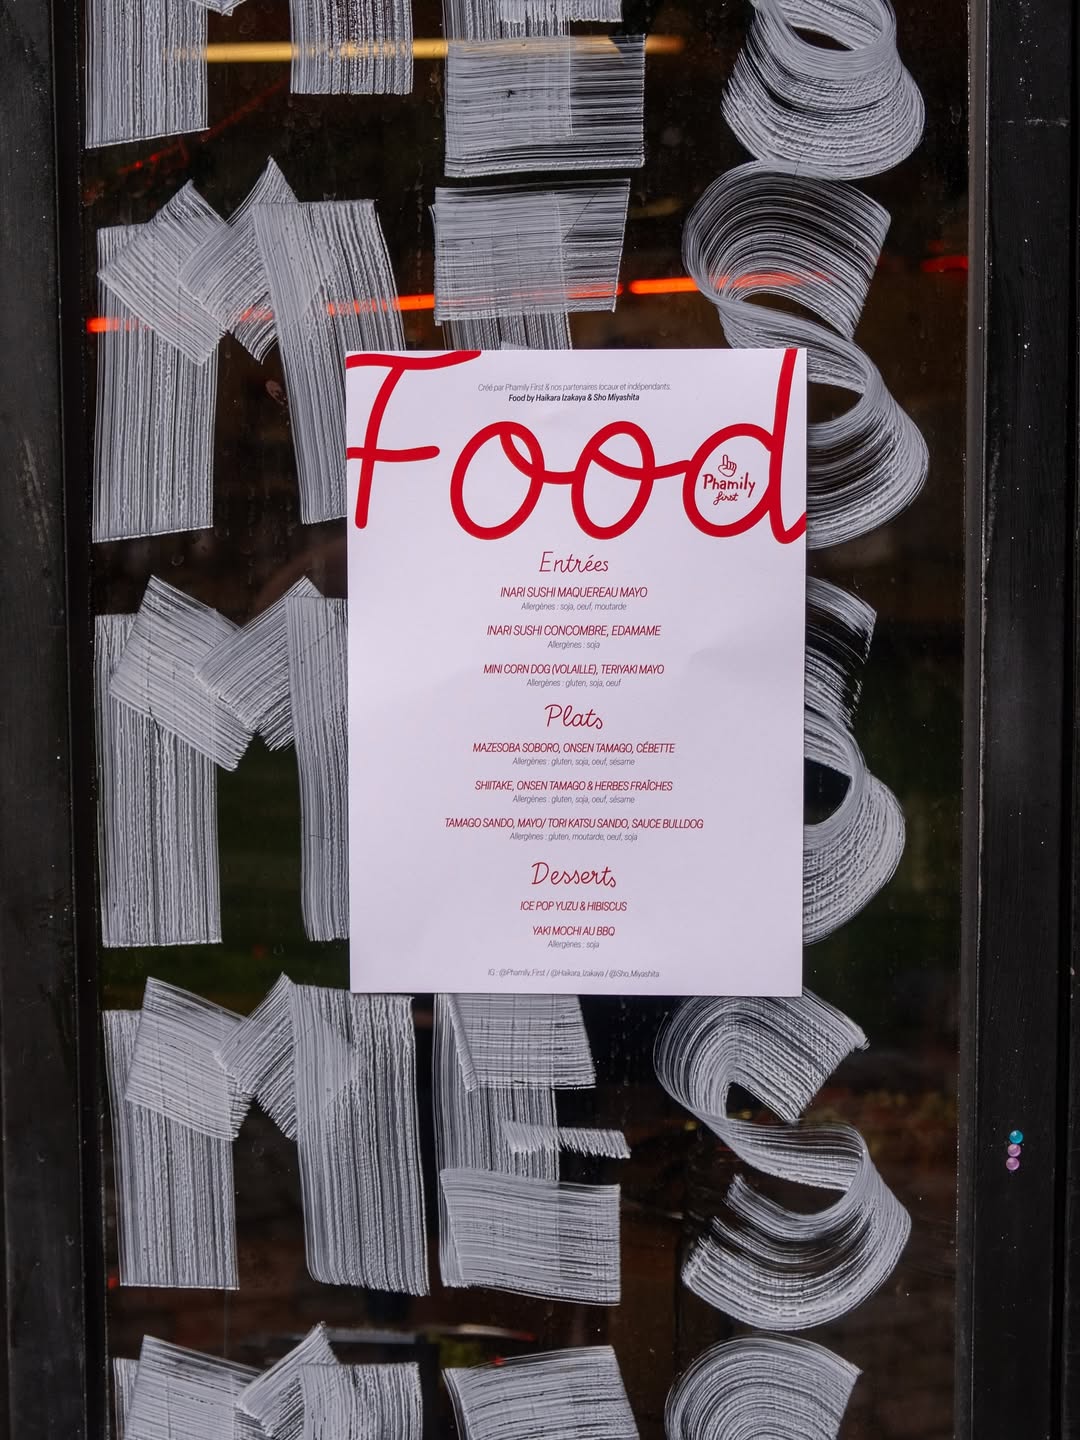 MES
MES
MES
Food
Créé par Phamily First & nos partenaires locaux et indépendants.
Food by Haikara Izakaya & Sho Miyashita
Phamily
first
Entrées
INARI SUSHI MAQUEREAU MAYO
Allergènes : soja, oeuf, moutarde
INARI SUSHI CONCOMBRE, EDAMAME
Allergènes : soja
MINI CORN DOG (VOLAILLE), TERIYAKI MAYO
Allergènes : gluten, soja, oeuf
Plats
MAZESOBA SOBORO, ONSEN TAMAGO, CÉBETTE
Allergènes : gluten, soja, oeuf, sésame
SHIITAKE, ONSEN TAMAGO & HERBES FRAÎCHES
Allergènes : gluten, soja, oeuf, sésame
TAMAGO SANDO, MAYO/ TORI KATSU SANDO, SAUCE BULLDOG
Allergènes : gluten, moutarde, oeuf, soja
Desserts
ICE POP YUZU & HIBISCUS
YAKI MOCHI AU BBQ
Allergènes : soja
IG : @Phamily_First / @Haikara_Izakaya / @Sho_Miyashita
MES
MES